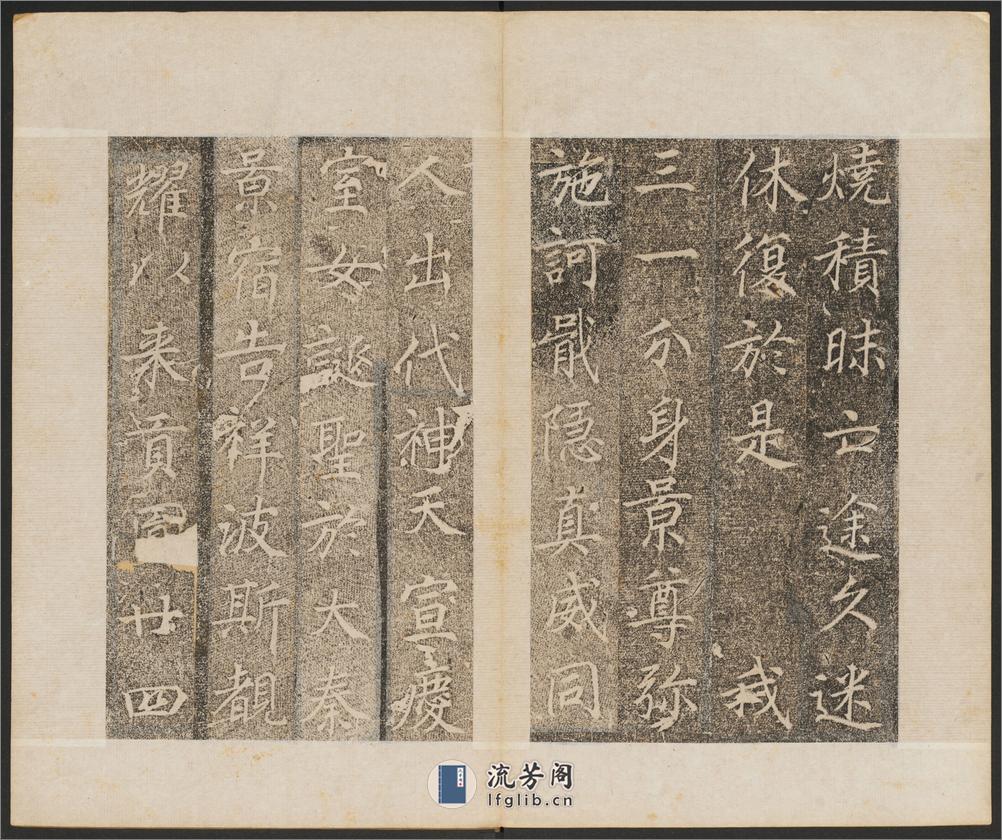 燒積昧亡途久迷
休復於是我
三一分身景尊弥
施訶戢隐真威同
人出代神天宣慶
室女誕聖於大秦
景宿告祥波斯覩
耀以来貢圆廿四
流芳阁
lfglib.cn